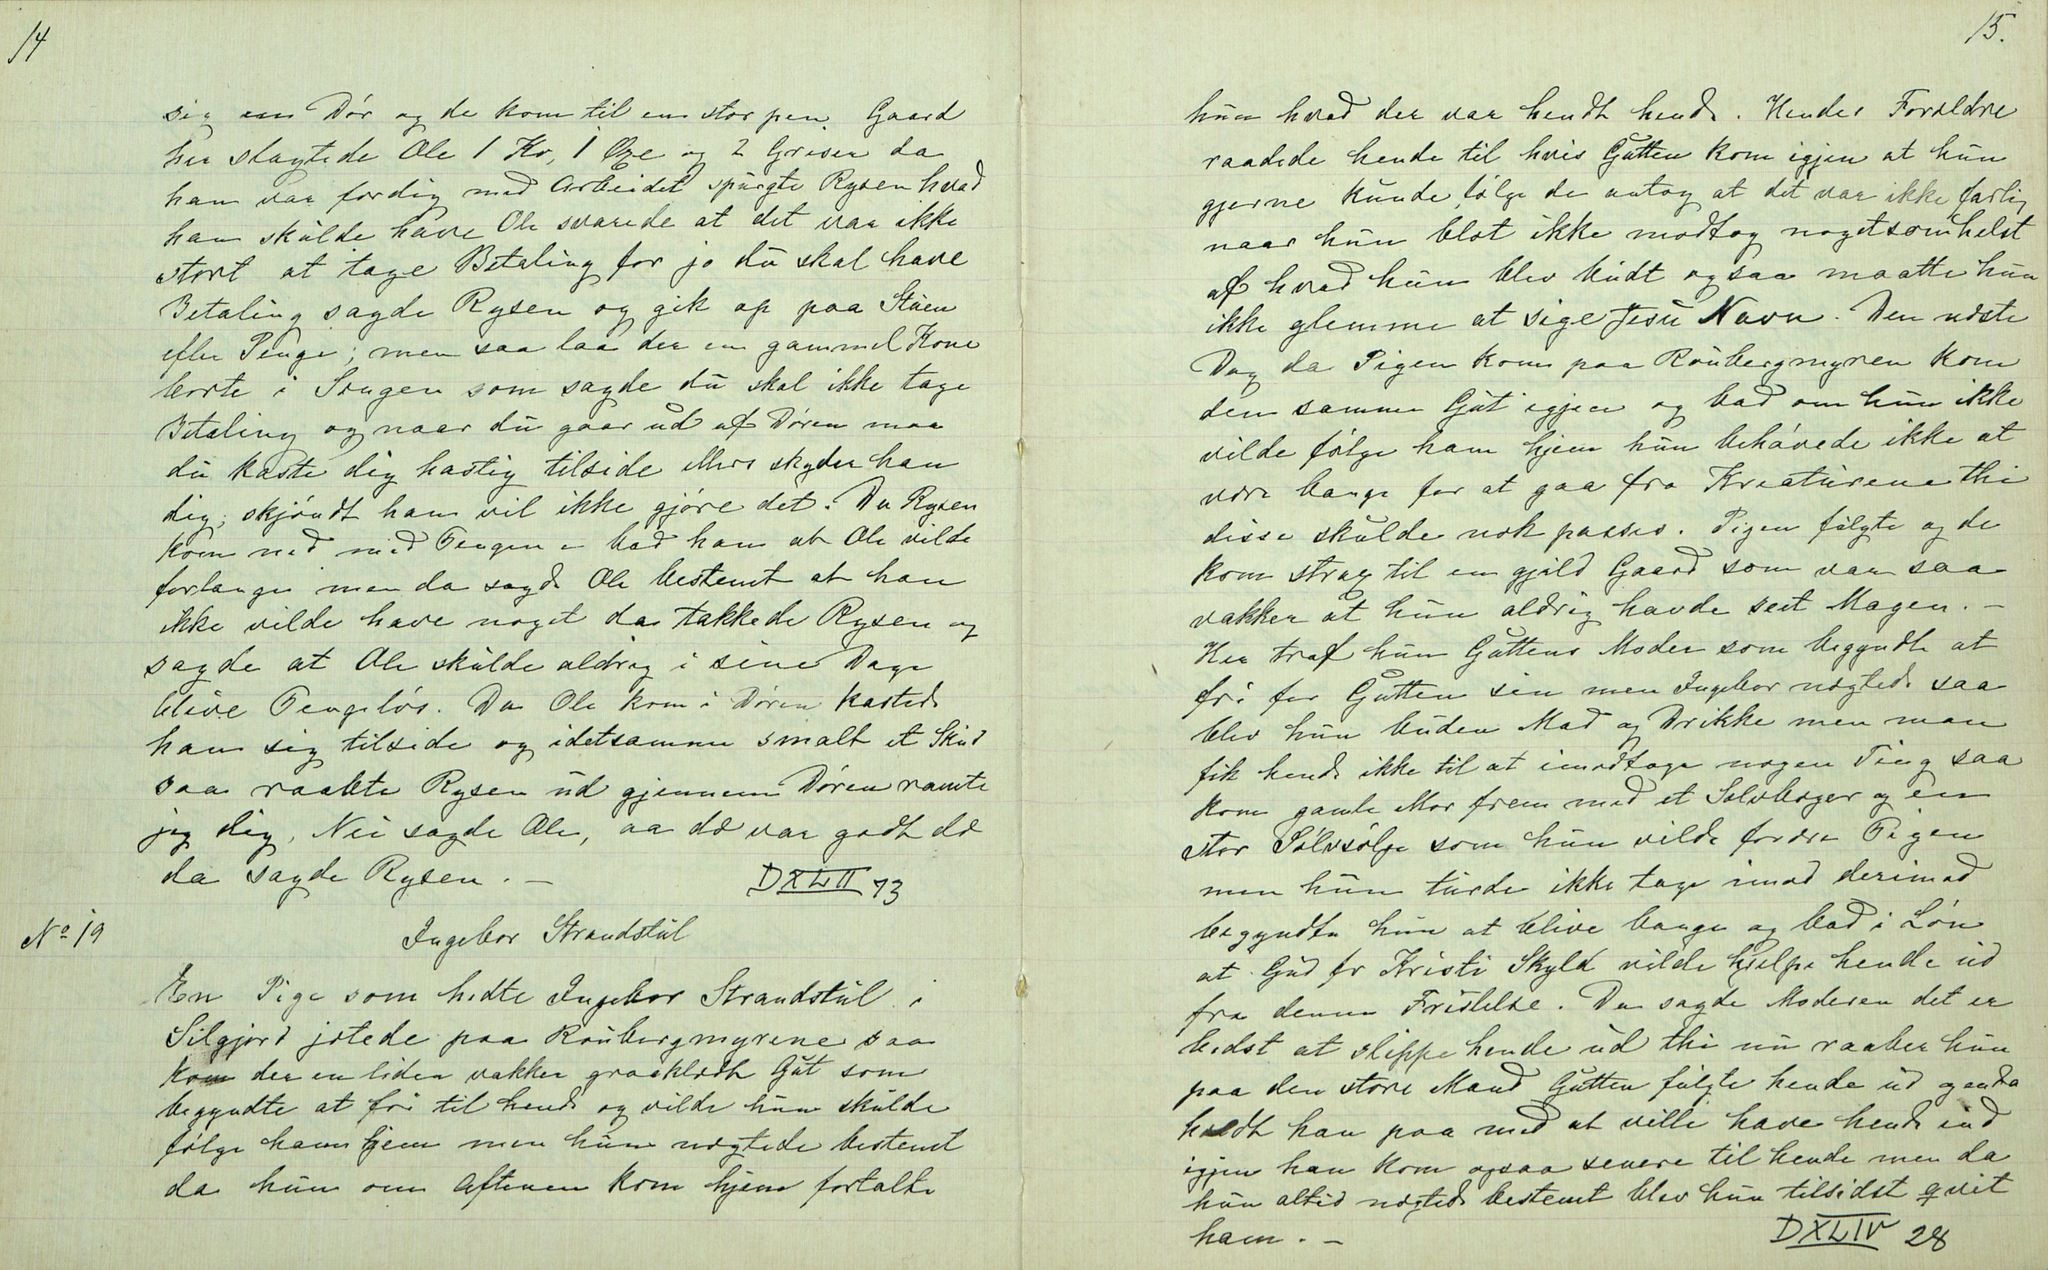 14
sig en Dør og de kom til en stor pen Gaard
her slagtede Ole 1 Ko, 1 Oxe og 2 Griser da
han var færdig med Arbeidet spurgte Rysen hvad
han skulde have Ole svarede at det var ikke
stort at tage Betaling for jo du skal have
Betaling sagde Rysen og gik op paa Stuen
efter Penge; men saa laa der en gammel Kone
borte i Sengen som sagde du skal ikke tage
Betaling og naar du gaar ud af Døren maa
du kaste dig hastig tilside ellers skyder han
dig, skjøndt han vil ikke gjøre det. Da Rysen
kom ned med Pengene bad han at Ole vilde
forlange men da sagde Ole bestemt at han
ikke vilde have noget da takkede Rysen og
sagde at Ole skulde aldrig i sine Dage
blive Pengeløs. Da Ole kom i Døren kastede
han sig tilside og idetsamme smalt et Skud
saa raabte Rysen ud gjennem Døren ramte
jeg dig, Nei sagde Ole, aa dæ var godt dæ
da sagde Rysen. —
DXLII 73
No 19
Ingebor Strandstul
En Pige som hedte Ingebor Strandstul i
Silgjord jætede paa Roubergmyrene saa
kom der en liden vakker graaklædt Gut som
begyndte at fri til hende og vilde hun skulde
følge ham hjem men hun nægtede bestemt
da hun om Aftenen kom hjem fortalte
15.
hun hvad der var hendt hende. Hendes Forældre
raadede hende til hvis Gutten kom igjen at hun
gjerne kunde følge de antog at det var ikke farlig
naar hun blot ikke modtog nogetsomhelst
af hvad hun blev budt og saa maatte hun
ikke glemme at sige Jesu Navn. Den næste
Dag da Pigen kom paa Roubergmyren kom
den samme Gut igjen og bad om hun ikke
vilde følge ham hjem hun behøvede ikke at
være bange for at gaa fra Kreaturene thi
disse skulde nok passes. Pigen fulgte og de
kom strax til en gjild Gaard som var saa
vakker at hun aldrig havde seet Magen. —
Her traf hun Guttens Moder som begyndte at
fri for Gutten sin men Ingebor nægtede saa
blev hun buden Mad og Drikke men man
fik hende ikke til at imodtage nogen Ting saa
kom gamle Mor frem med et Sølvbæger og en
stor Sølvsølje som hun vilde forære Pigen
men hun turde ikke tage imod derimod
begyndte hun at blive bange og bad i Løn
at Gud for Kristi Skyld vilde hjelpe hende ud
fra denne Fristelse. Da sagde Moderen det er
bedst at slippe hende ud thi nu raaber hun
paa den store Mand Gutten fulgte hende ud og enda
holdt han paa med at ville have hende ind
igjen han kom ogsaa senere til hende men da
hun altid nægtede bestemt blev hun tilsidst qvit
ham. —
DXLIV 28